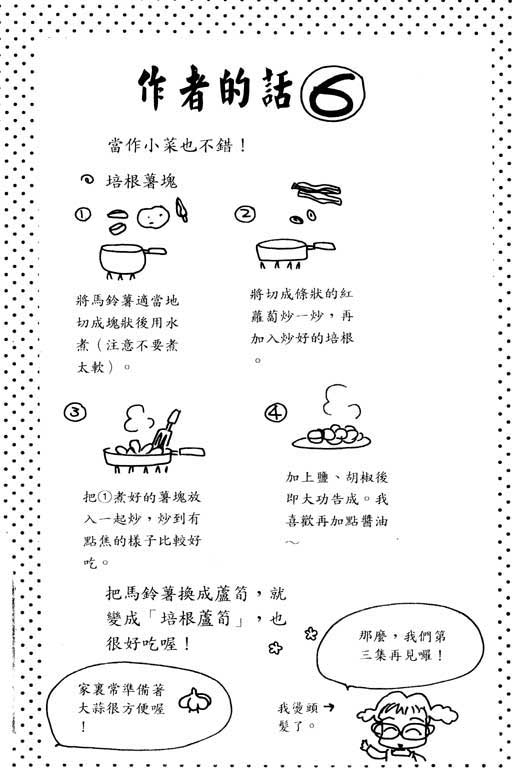 作者的話⑥
當作小菜也不錯！
培根薯塊
①
將馬鈴薯適當地
切成塊狀後用水
煮（注意不要煮
太軟）。
②
將切成條狀的紅
蘿蔔炒一炒，再
加入炒好的培根
。
③
把①煮好的薯塊放
入一起炒，炒到有
點焦的樣子比較好
吃。
④
加上鹽、胡椒後
即大功告成。我
喜歡再加點醬油
～
把馬鈴薯換成蘆筍，就
變成「培根蘆筍」，也
很好吃喔！
家裏常準備著
大蒜很方便喔
！
那麼，我們第
三集再見囉！
我燙頭→
髮了。